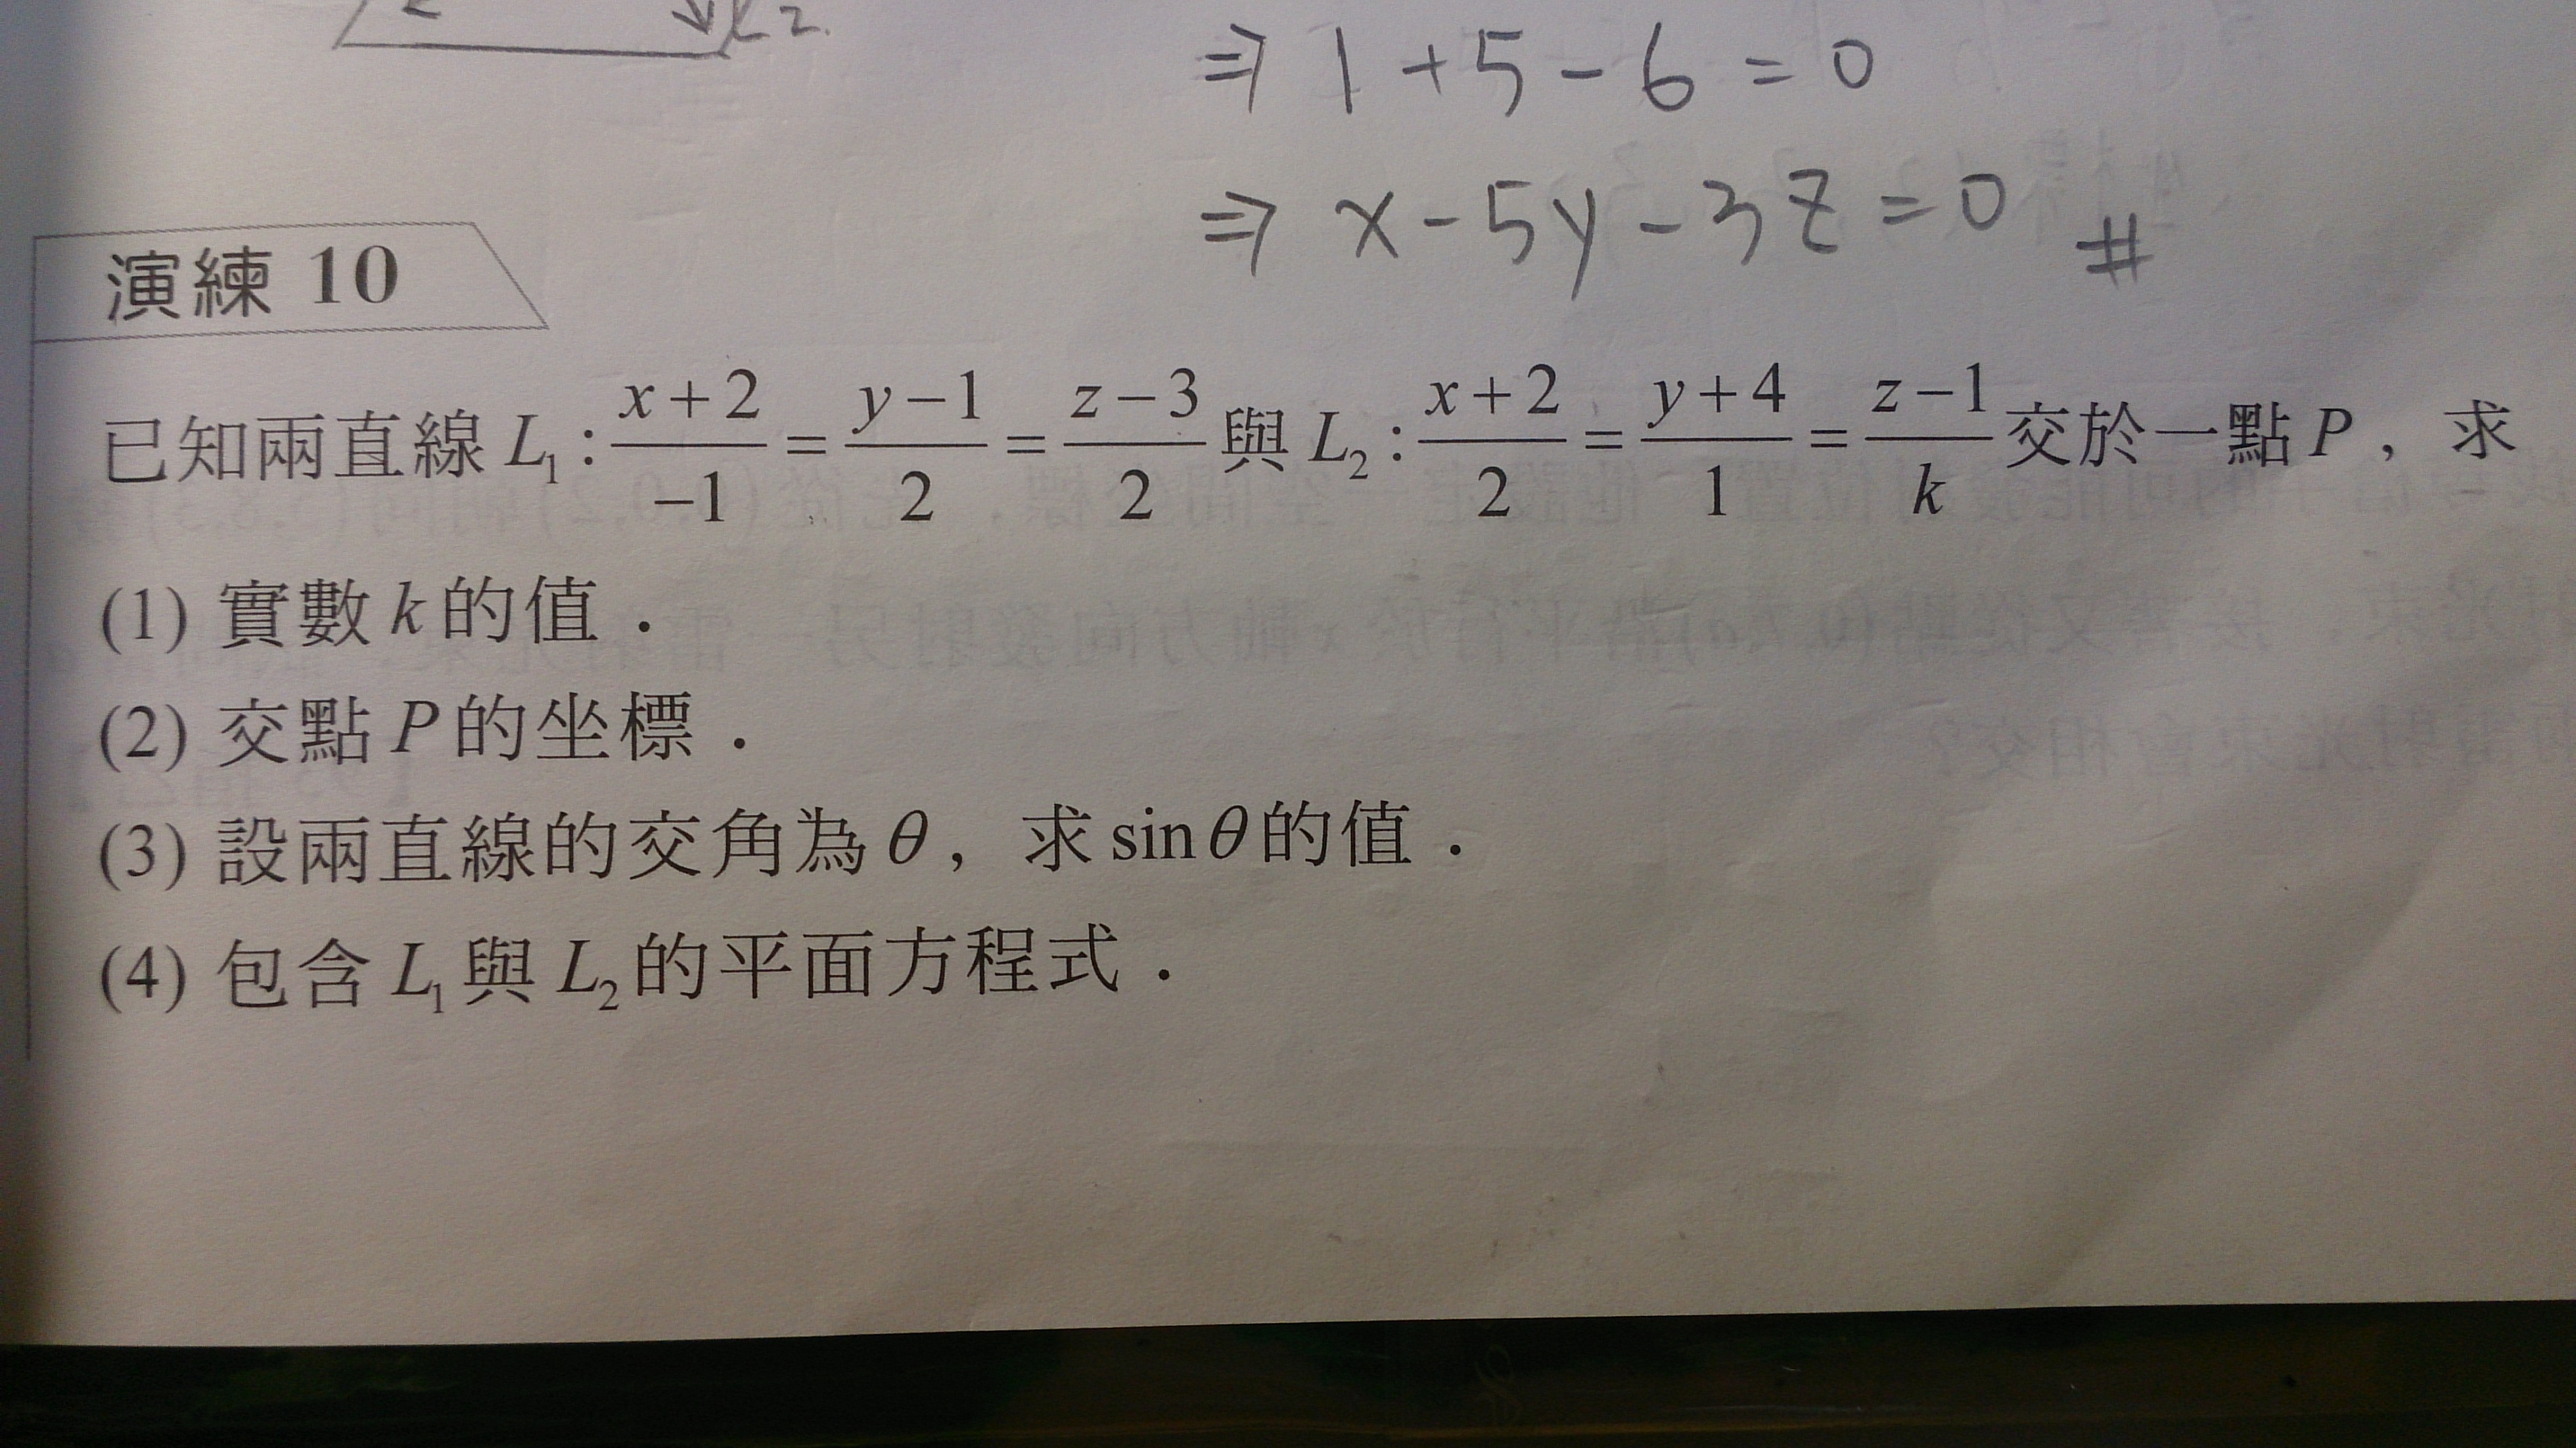 L2.
⇒ 1+5-6=0
⇒ x-5y-3z=0 #
演練 10
已知兩直線 L₁ : (x+2)/(-1) = (y-1)/2 = (z-3)/2 與 L₂ : (x+2)/2 = (y+4)/1 = (z-1)/k 交於一點 P , 求
(1) 實數 k 的值 .
(2) 交點 P 的坐標 .
(3) 設兩直線的交角為 θ , 求 sinθ 的值 .
(4) 包含 L₁ 與 L₂ 的平面方程式 .